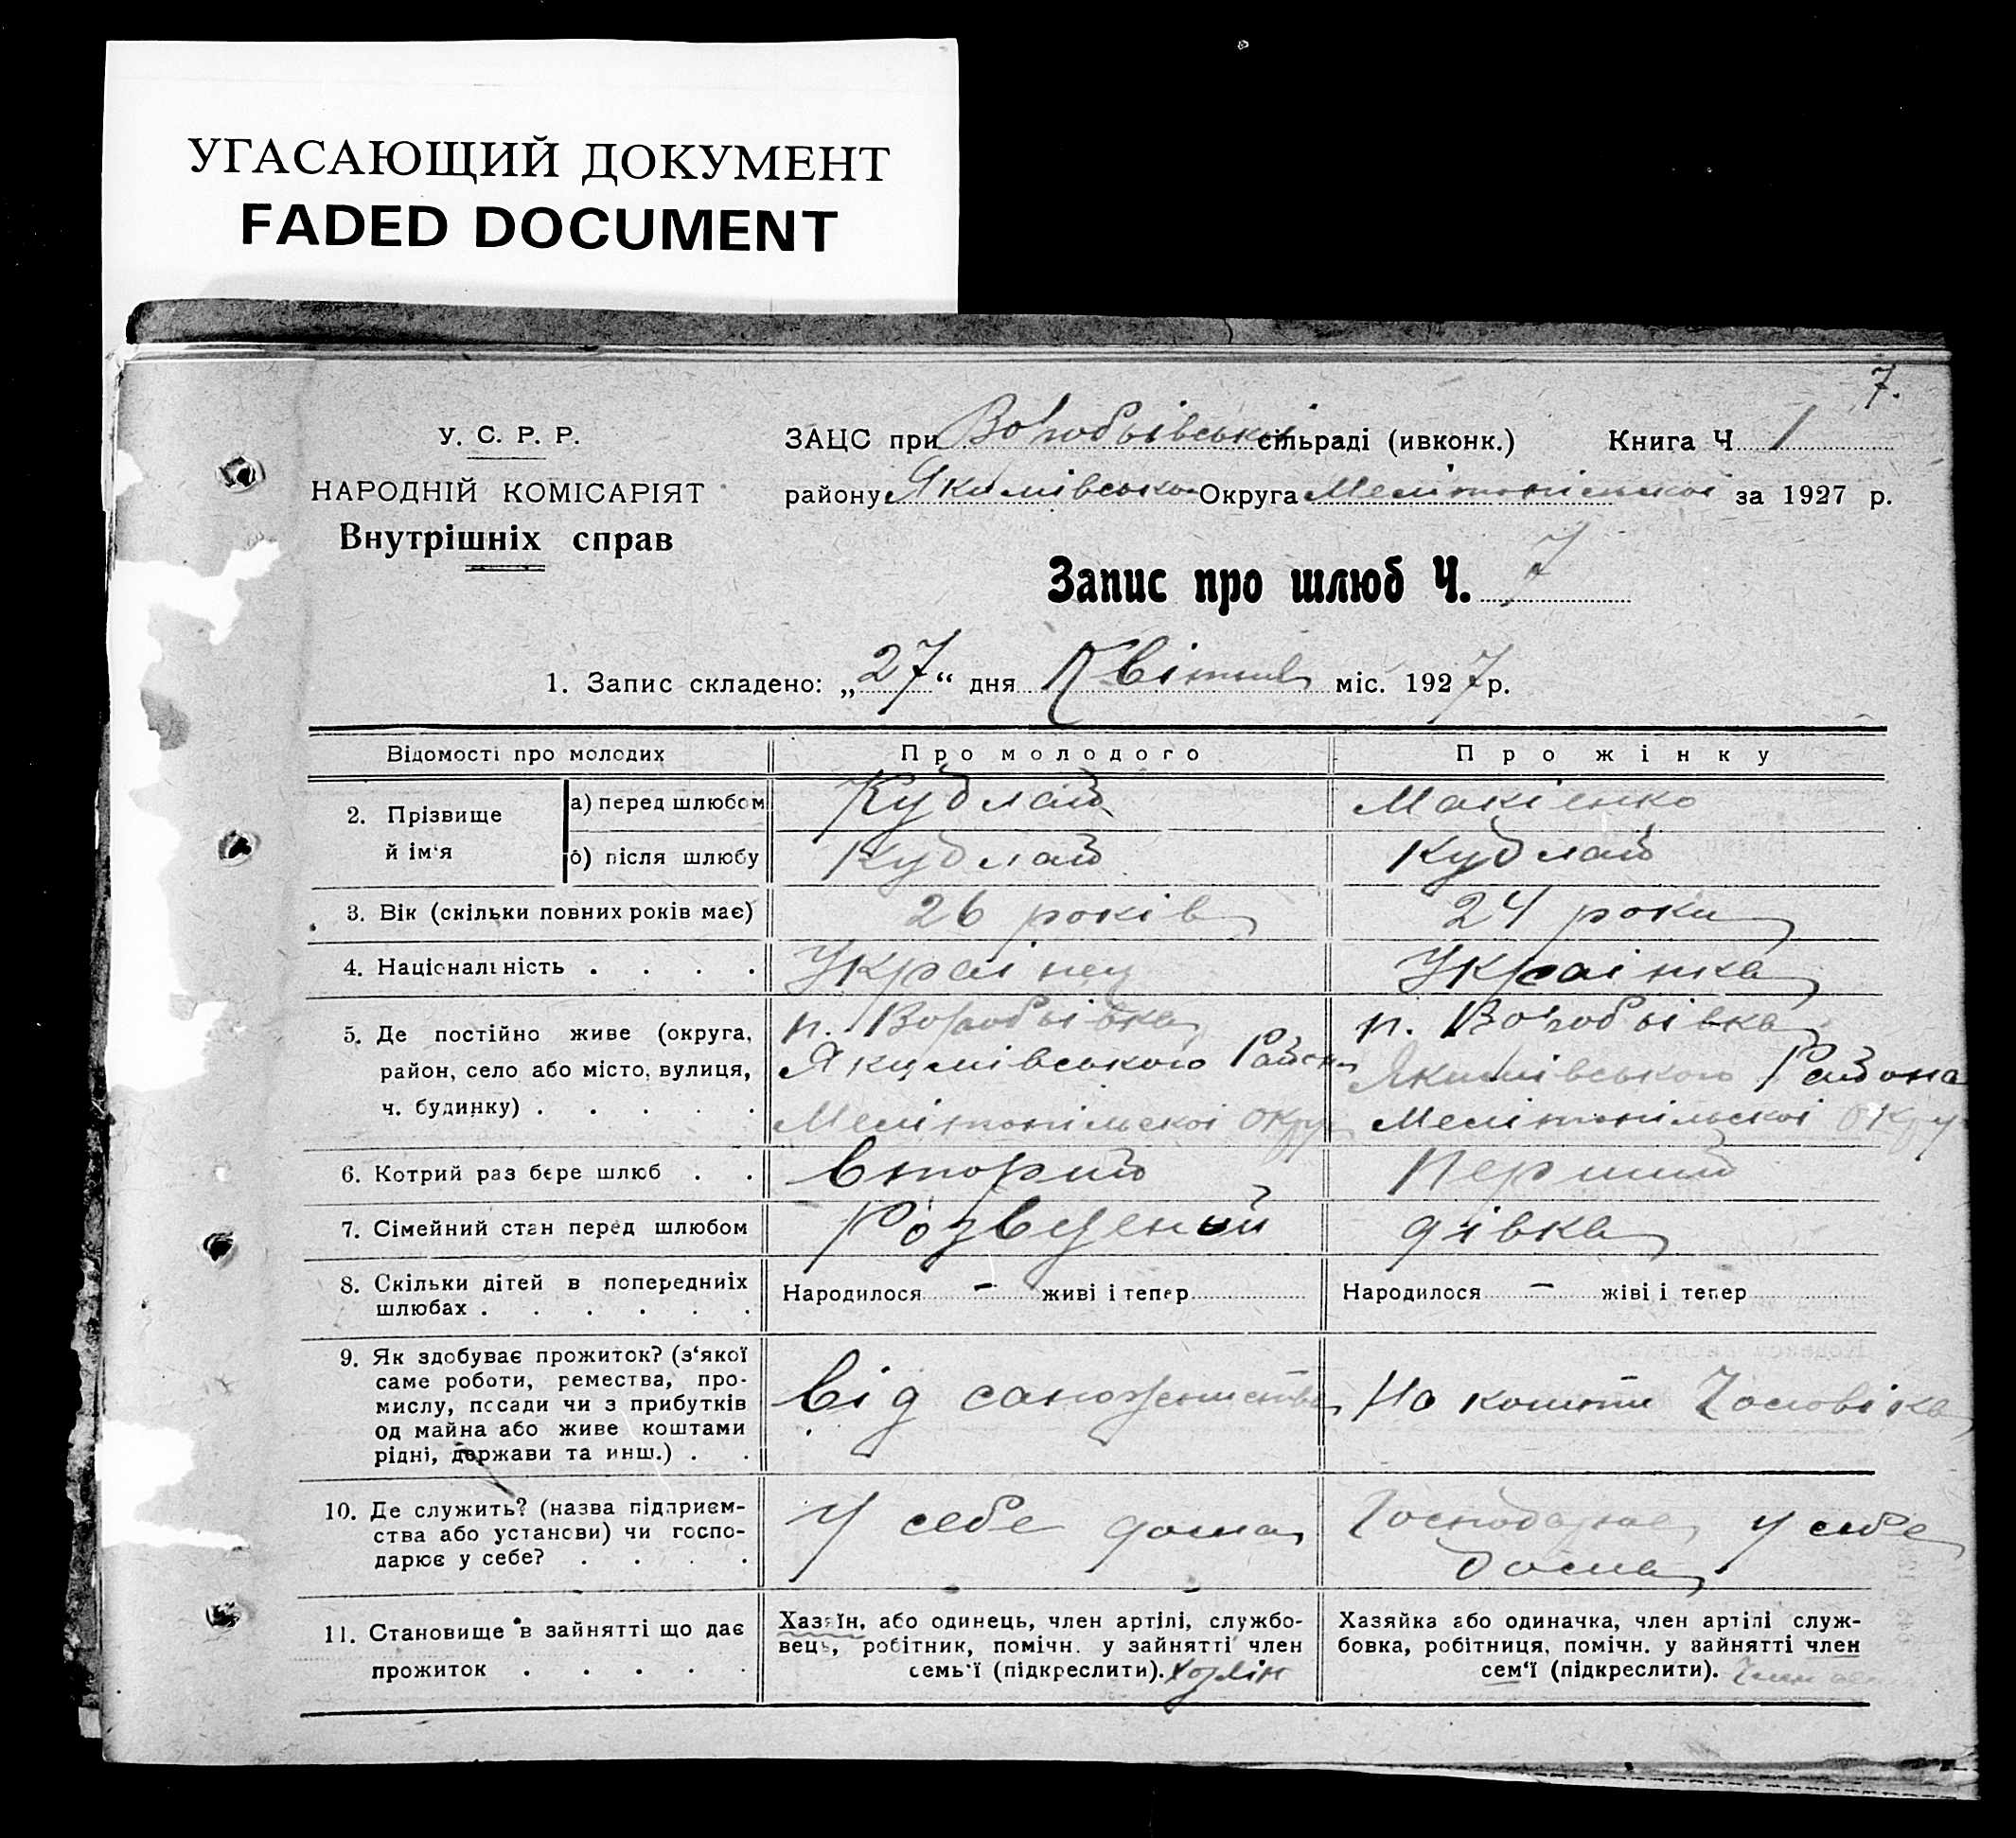 УГАСАЮЩИЙ ДОКУМЕНТ
FADED DOCUMENT
7.
У. С. Р. Р.
НАРОДНІЙ КОМІСАРІЯТ
Внутрішніх справ
ЗАЦС при Воробьівськоі сільраді (ивконк.) Книга Ч 1
району Якимівсько Округа Мелітопільскоі за 1927 р.
Запис про шлюб Ч. 7
1. Запис складено: „27“ дня Квітня міс. 1927 р.
Відомості про молодих Про молодого Про жінку
2. Прізвище й ім‘я
а) перед шлюбом Кудлай Макієнко
б) після шлюбу Кудлай Кудлай
3. Вік (скільки повних років має) 26 років 24 роки
4. Національність . . . . Украінец Украінка
5. Де постійно живе (округа, п. Воробьівка п. Воробьівка
район, село або місто, вулиця, Якимівського Района Якимівського Района
ч. будинку) . . . . . Мелітопільскоі Окру Мелітопільскоі Окру
6. Котрий раз бере шлюб . . вторий Перший
7. Сімейний стан перед шлюбом Розведений дівка
8. Скільки дітей в попередниіх Народилося – живі і тепер Народилося – жіві і тепер
шлюбах . . . . . .
9. Як здобуває прожиток? (з‘якої
саме роботи, ремества, про-
мислу, посади чи з прибутків від На кошти Чоловіка
од майна або живе коштами
рідні, держави та инш.) . .
10. Де служить? (назва підприєм- У себе дома Господарює у себе
ства або установи) чи госпо- дома
дарює у себе? . . . .
11. Становище в зайнятті що дає Хазяїн, або одинець, член артілі, службо- Хазяйка або одиначка, член артілі служ-
вець, робітник, помічн. у зайнятті член бовка, робітниця, помічн. у зайнятті член
прожиток . . . . . семь‘ї (підкреслити). Хозяін сем‘ї (підкреслити). Член